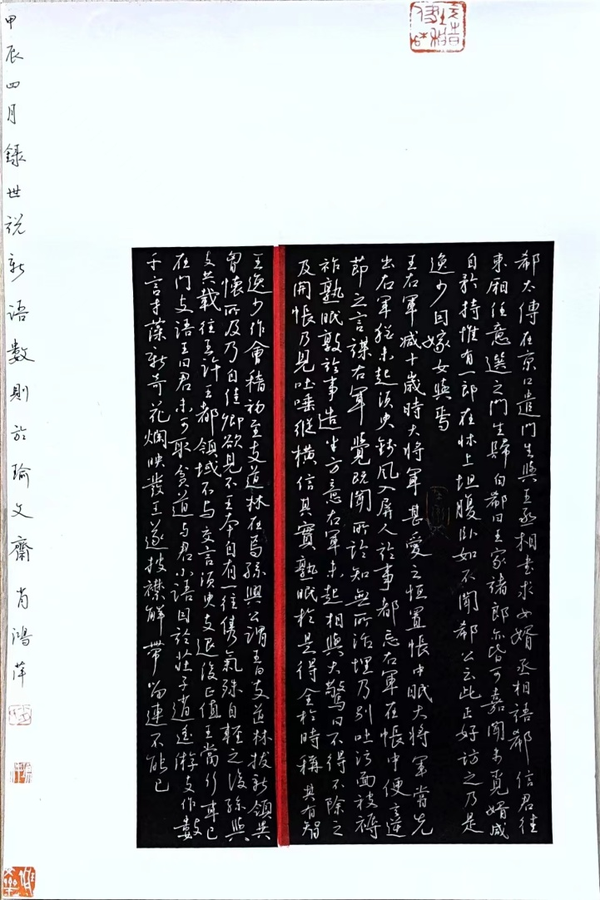 郗太傅在京口遣门生與王丞相書求女婿丞相語郗信君往
東厢任意選之门生歸白郗曰王家諸郎亦皆可嘉聞来覓婿咸
自矜持惟有一郎在牀上坦腹卧如不聞郗公云此正好訪之乃是
逸少因嫁女與焉
王右軍减十歲時大將軍甚愛之恒置帳中眠大將軍嘗先
出右軍猶未起須臾錢鳳入屏人論事都忘右軍在帳中便言逆
節之言謀右軍覺既聞所論知無所活理乃剔吐污面被褥
詐熟眠敦論事造半方意右軍未起相與大驚曰不得不除之
及開帳乃見吐唾縱橫信其實熟眠於是得全於時稱其有智
王逸少作會稽初至支道林在焉孫興公謂王曰支道林拔新領異
胸懷所及乃自佳卿欲見不王本自有一往雋氣殊自輕之後孫與
支共載往王許王都領域不與交言須臾支退後正值王當行車已
在门支語王曰君未可去貧道與君小語因論莊子逍遥遊支作數
千言才藻新奇花爛映發王遂披襟解帶留連不能已
甲辰四月録世说新語數則於瑜文齋 肖鴻萍